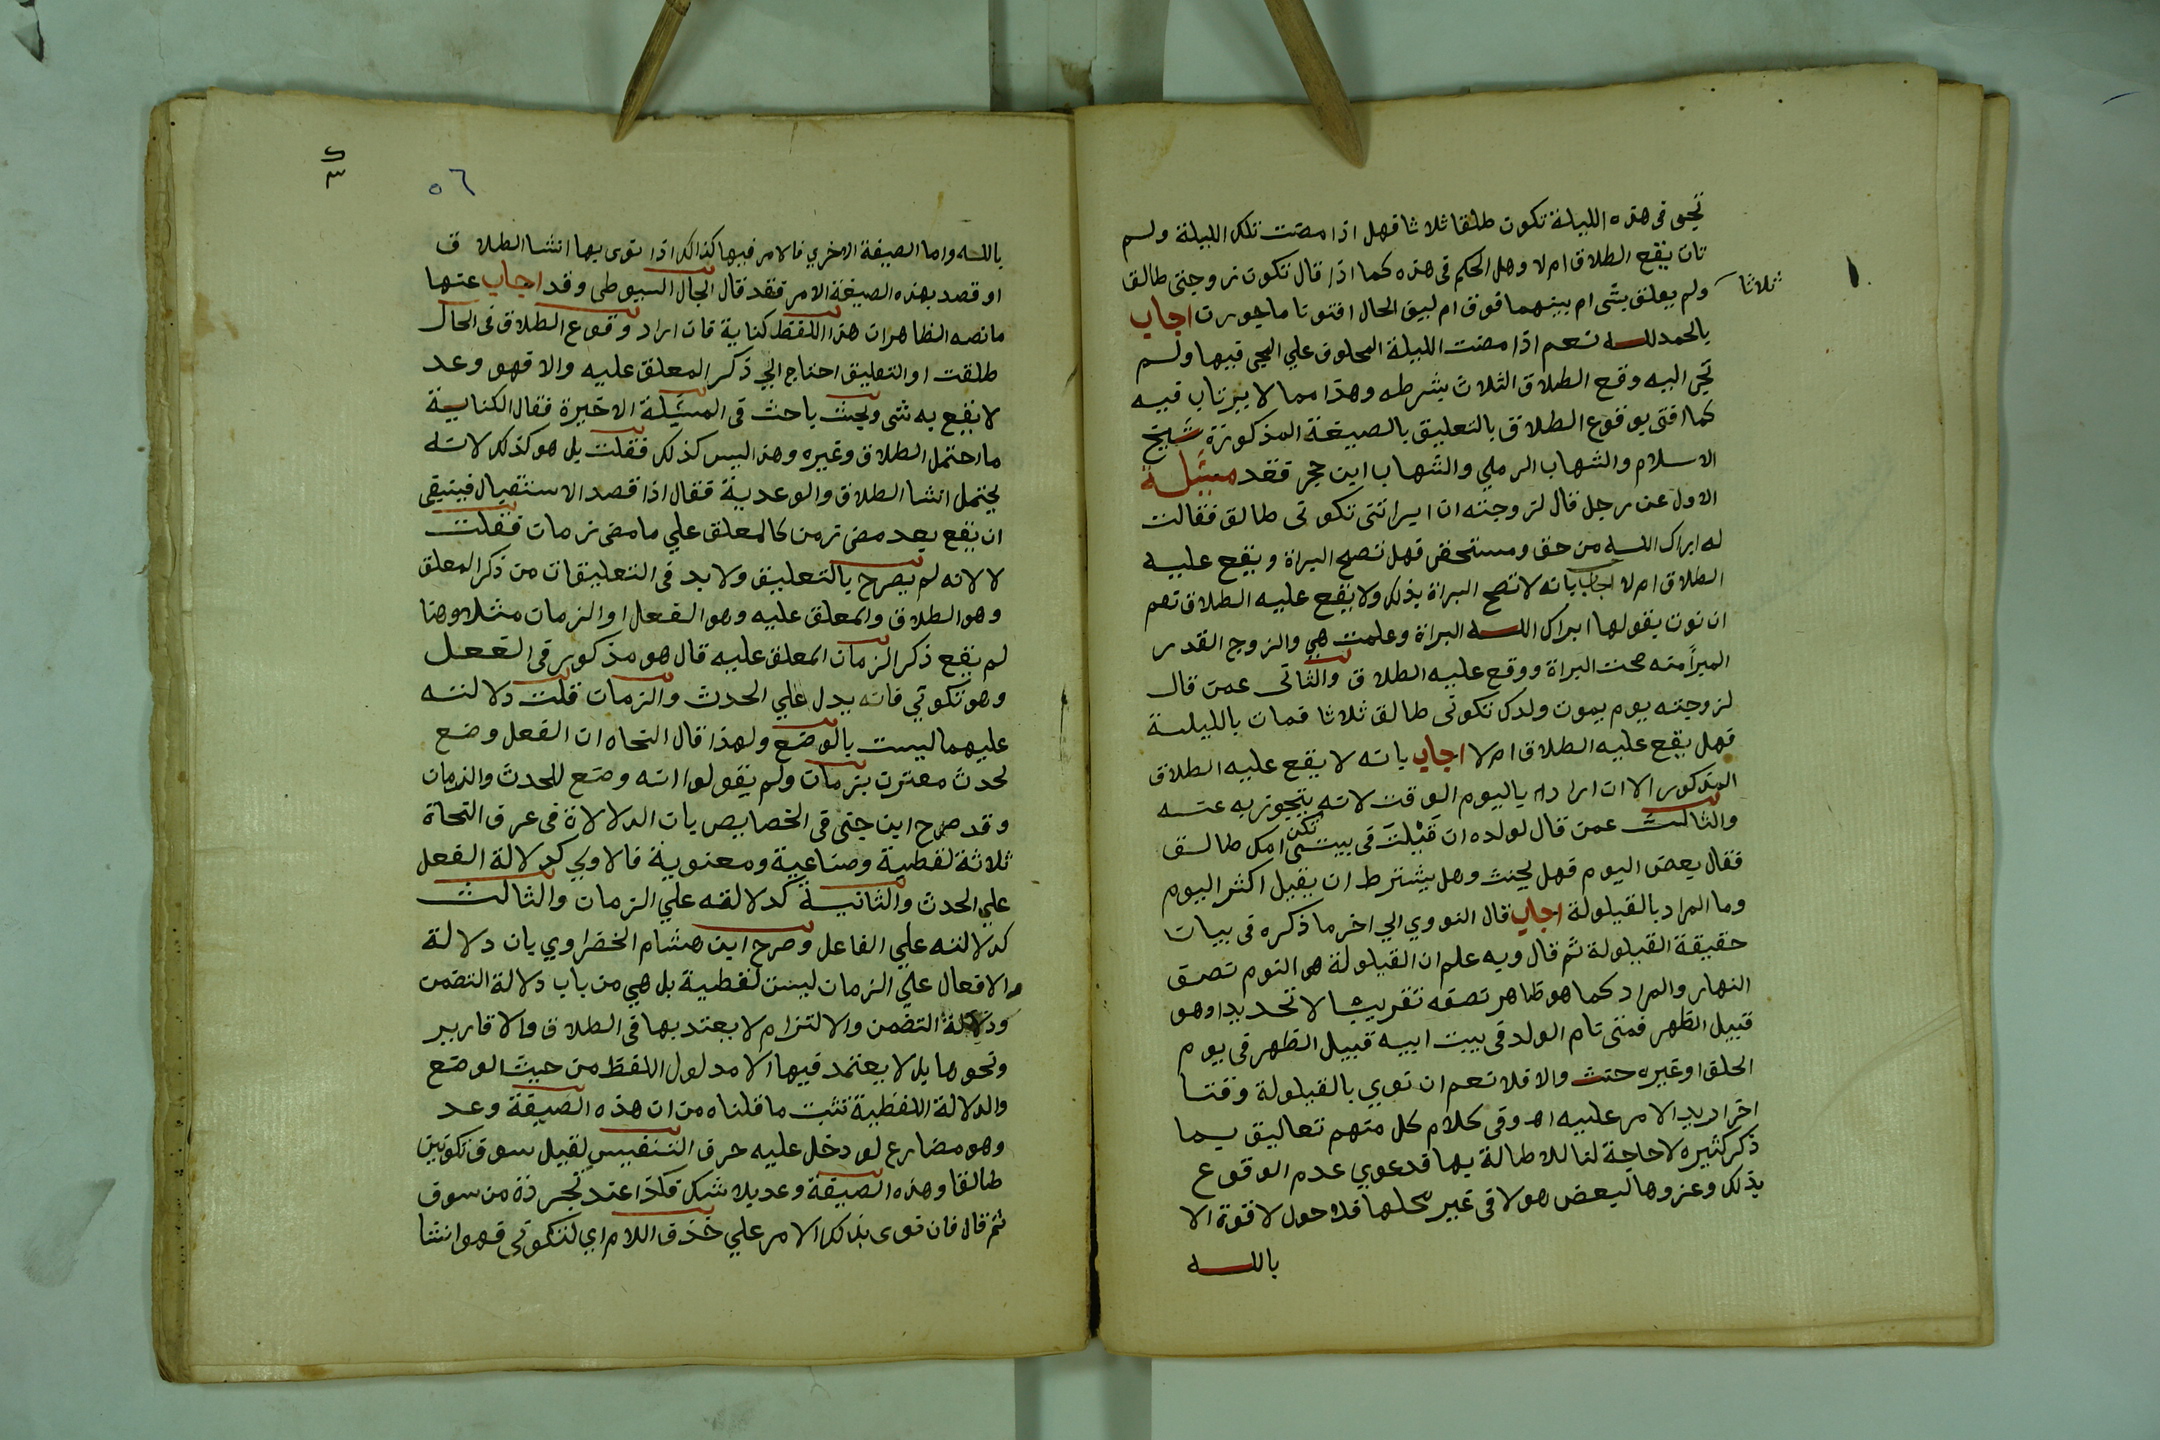 تجي في هذه الليلة تكون طلقا ثلاثا فهل اذا مضت تلك الليلة ولم
تات يقع الطلاق ام لا وهل الحكم في هذه كما اذا قال تكون زوجتي طالق
ثلاثا
ولم يعلق بشي ام بينهما فرق ام ليق الحال افتونا ماجورين اجاب
بالحمد لله نعم اذا مضت الليلة المحلوف علي المجي فيها ولم
تجي اليه وقع الطلاق الثلاث بشرطه وهذا مما لا يرتاب فيه
كما افتي بوقوع الطلاق بالتعليق بالصيغة المذكورة شيخ
الاسلام والشهاب الرملي والشهاب ابن حجر فقد مسئلة
الاول عن رجل قال لزوجته ان ابراتني تكوني طالق فقالت
له ابراك الله من حق ومستحق فهل تصح البراة ويقع عليه
الطلاق ام لا اجاب بانه لا تصح البراة بذلك ولا يقع عليه الطلاق نعم
ان نوت بقولها ابراك الله البراة وعلمت هي والزوج القدر
المبرأ منه صحت البراة ووقع عليه الطلاق والثاني عمن قال
لزوجته يوم يموت ولدك تكوني طالق ثلاثا فمات بالليلة
فهل يقع عليه الطلاق ام لا اجاب بانه لا يقع عليه الطلاق
المذكور الا ان اراد باليوم الوقت لانه يتجوز به عنه
والثالث عمن قال لولده ان قيلت في بيتي تكن امك طالق
فقال بعض اليوم فهل يحنث وهل يشترط ان يقيل اكثر اليوم
وما المراد بالقيلولة اجاب قال النووي الي اخر ما ذكره في بيان
حقيقة القيلولة ثم قال وبه علم ان القيلولة هو النوم نصف
النهار والمراد كما هو ظاهر نصفه تقريبا لا تحديدا وهو
قبيل الظهر فمتي نام الولد في بيت ابيه قبيل الظهر في يوم
الحلق او غيره حنث والا فلا نعم ان نوي بالقيلولة وقتا
اخر ادير الامر عليه اه وفي كلام كل منهم تعاليق بما
ذكر كثيره لا حاجة لنا للاطالة بها فدعوي عدم الوقوع
بذلك وعزوها لبعض هولا في غير محلها فلا حول لا قوة الا
بالله
٥٦
بالله واما الصيغة الاخري فالامر فيها كذلك اذا نوي بها انشا الطلاق
او قصد بهذه الصيغة الامر فقد قال الجال السيوطي وقد اجاب عنها
ما نصه الظاهر ان هذا اللفظ كناية فان اراد وقوع الطلاق في الحال
طلقت او التعليق احتاج الي ذكر المعلق عليه والا فهو وعد
لا يقع به شي وبحث باحث في المسئلة الاخيرة فقال الكناية
ما احتمل الطلاق وغيره وهذا ليس كذلك فقلت بل هو كذلك لانه
يحتمل انشا الطلاق والوعد به فقال اذا قصد الاستقبال فينبغي
ان يقع بعد مضي زمن كالمعلق علي ما مضي زمان فقلت
لا لانه لم يصرح بالتعليق ولا بد في التعليقات من ذكر المعلق
وهو الطلاق والمعلق عليه وهو الفعل او الزمان مثلا وهنا
لم يقع ذكر الزمان المعلق عليه قال هو مذكور في الفعل
وهو تكوني فانه يدل علي الحدث والزمان قلت دلالته
عليهما ليست بالوضع ولهذا قال النحاه ان الفعل وضع
لحدث مقترن بزمان ولم يقولوا انه وضع للحدث والزمان
وقد صرح ابن جني في الخصايص بان الدلالاة في عرف النحاة
ثلاثة لفظية وصناعية ومعنوية فالاولي كدلالة الفعل
علي الحدث والثانية كدلالته علي الزمان والثالث
كدلالته علي الفاعل وصرح ابن هشام الخضراوي بان دلالة
الافعال علي الزمان ليست لفظية بل هي من باب دلالة التضمن
ودلالة التضمن والالتزام لا يعتد بها في الطلاق والاقارير
ونحوها بل لا يعتمد فيها الا مدلول اللفظ من حيث الوضع
والدلالة اللفظية تثبت ما قلناه من ان هذه الصيغة وعد
وهو مضارع لو دخل عليه حرف التنفيس لقيل سوف تكونين
طالقا وهذه الصيغة وعد بلا شك فكذا عند تجرده من سوف
ثم قال فان نوي بذلك الامر علي حذف اللام اي لتكوني فهو انشا